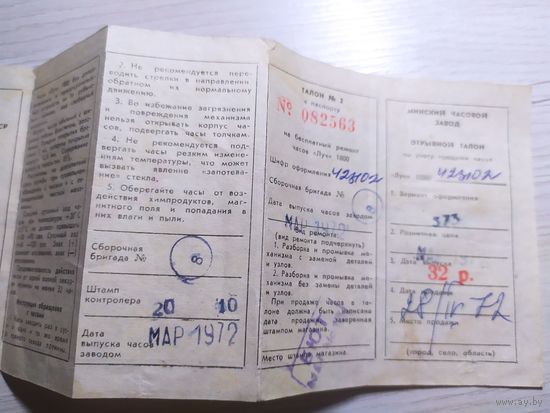 2. Не рекомендуется пере-
водить стрелки в направлении
обратном их нормальному
движению.
3. Во избежание загрязнения
и повреждения механизма
нельзя открывать корпус ча-
сов, подвергать часы толчкам.
4. Не рекомендуется под-
вергать часы резким изменени-
ям температуры, что может
вызвать явление «запотева-
ние» стекла.
5. Оберегайте часы от воз-
действия химпродуктов, маг-
нитного поля и попадания в
них влаги и пыли.
Сборочная
бригада № 8
Штамп
контролера 20 10
Дата
выпуска часов
заводом МАР 1972
ТАЛОН № 2
к паспорту
№ 082563
на бесплатный ремонт
часов «Луч» 1800
Шифр оформления 423702
Сборочная бригада № 8
Дата выпуска часов заводом
МАР 1972
Вид ремонта:
(вид ремонта подчеркнуть)
1. Разборка и промывка ме-
ханизма с заменой деталей
и узлов.
2. Разборка и промывка ме-
ханизма без замены деталей
и узлов.
При продаже часов в та-
лоне должна быть записана
дата продажи заверенная
штампом магазина.
Место штампа магазина.
МИНСКИЙ ЧАСОВОЙ
ЗАВОД
ОТРЫВНОЙ ТАЛОН
по учету продажи часов
«Луч» 1800 423702
1. Вариант оформления
373
2. Розничная цена
3. Дата выпуска
32 р.
4. Дата продажи
28/IV 72
5. Место продажи
(город, село, область)
www.ay.by